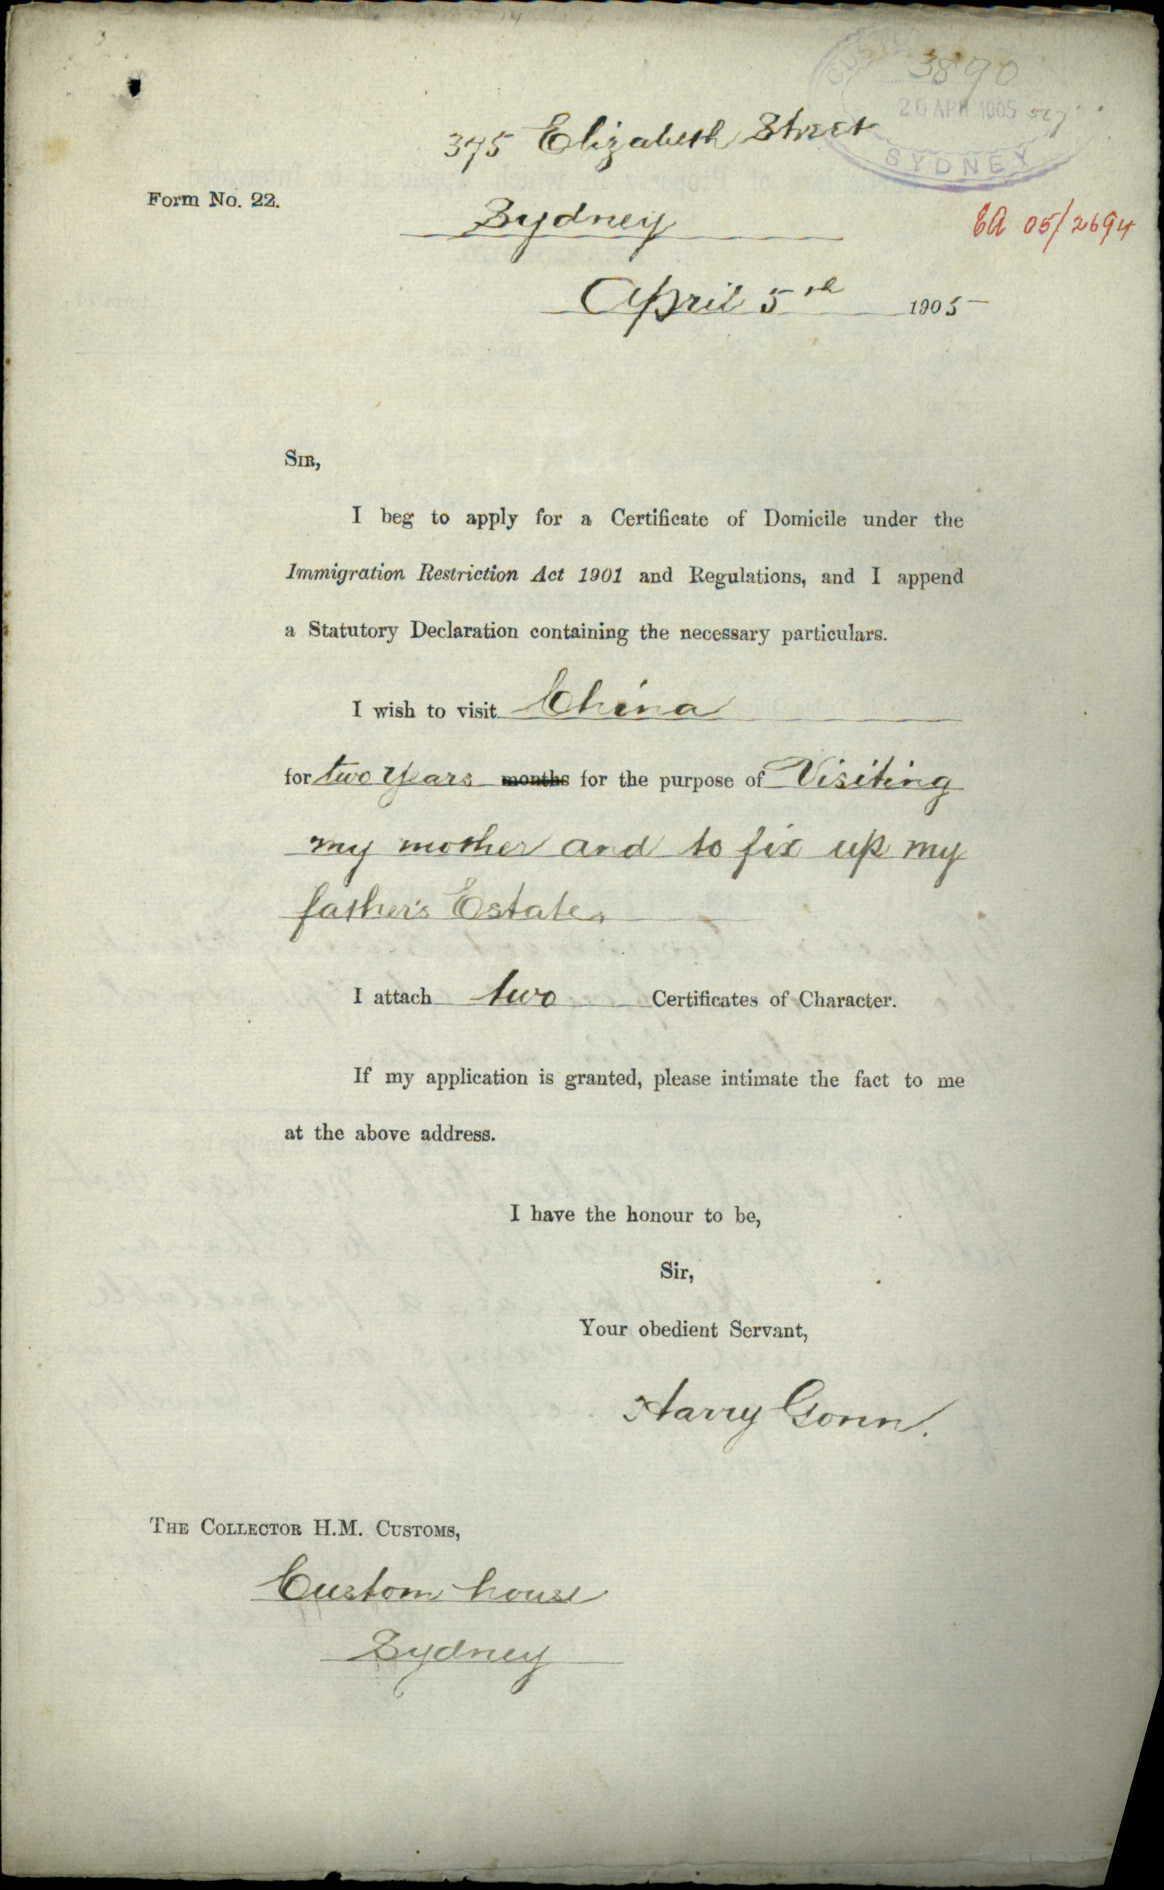 3890
20 APR 1905
SYDNEY
375 Elizabeth Street
Form No. 22.
Sydney
EA 05/2694
April 5th 1905
SIR,
I beg to apply for a Certificate of Domicile under the
Immigration Restriction Act 1901 and Regulations, and I append
a Statutory Declaration containing the necessary particulars.
I wish to visit China
for two years months for the purpose of Visiting
my mother and to fix up my
father's Estate.
I attach two Certificates of Character.
If my application is granted, please intimate the fact to me
at the above address.
I have the honour to be,
Sir,
Your obedient Servant,
Harry Gonn.
THE COLLECTOR H.M. CUSTOMS,
Custom house
Sydney